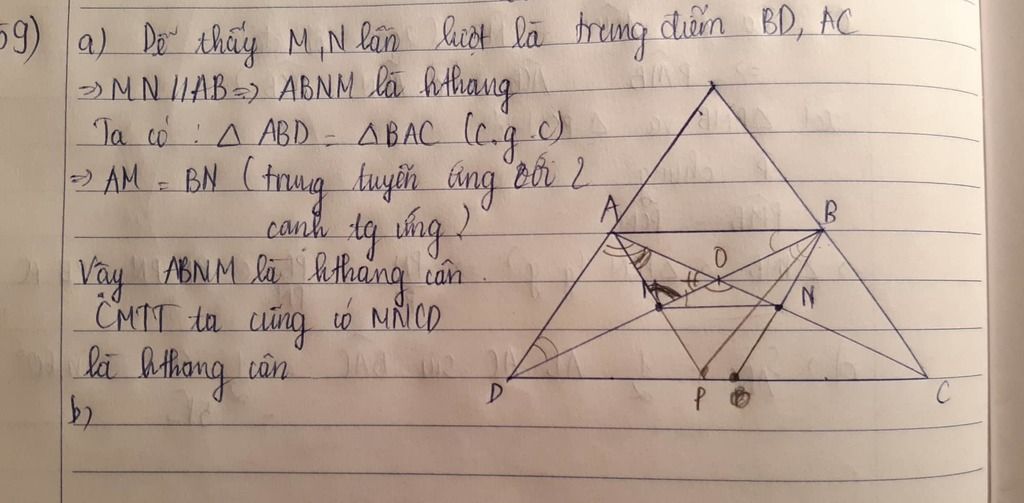 59)
a) Dễ thấy M,N lần lượt là trung điểm BD, AC
=> MN // AB => ABNM là hthang
Ta có : △ ABD = △BAC (c.g.c)
=> AM = BN ( trung tuyến ứng với 2
cạnh tg ứng )
Vậy ABNM là hthang cân .
CMTT ta cũng có MNCD
là hthang cân
b)
A B
O
M N
D P C